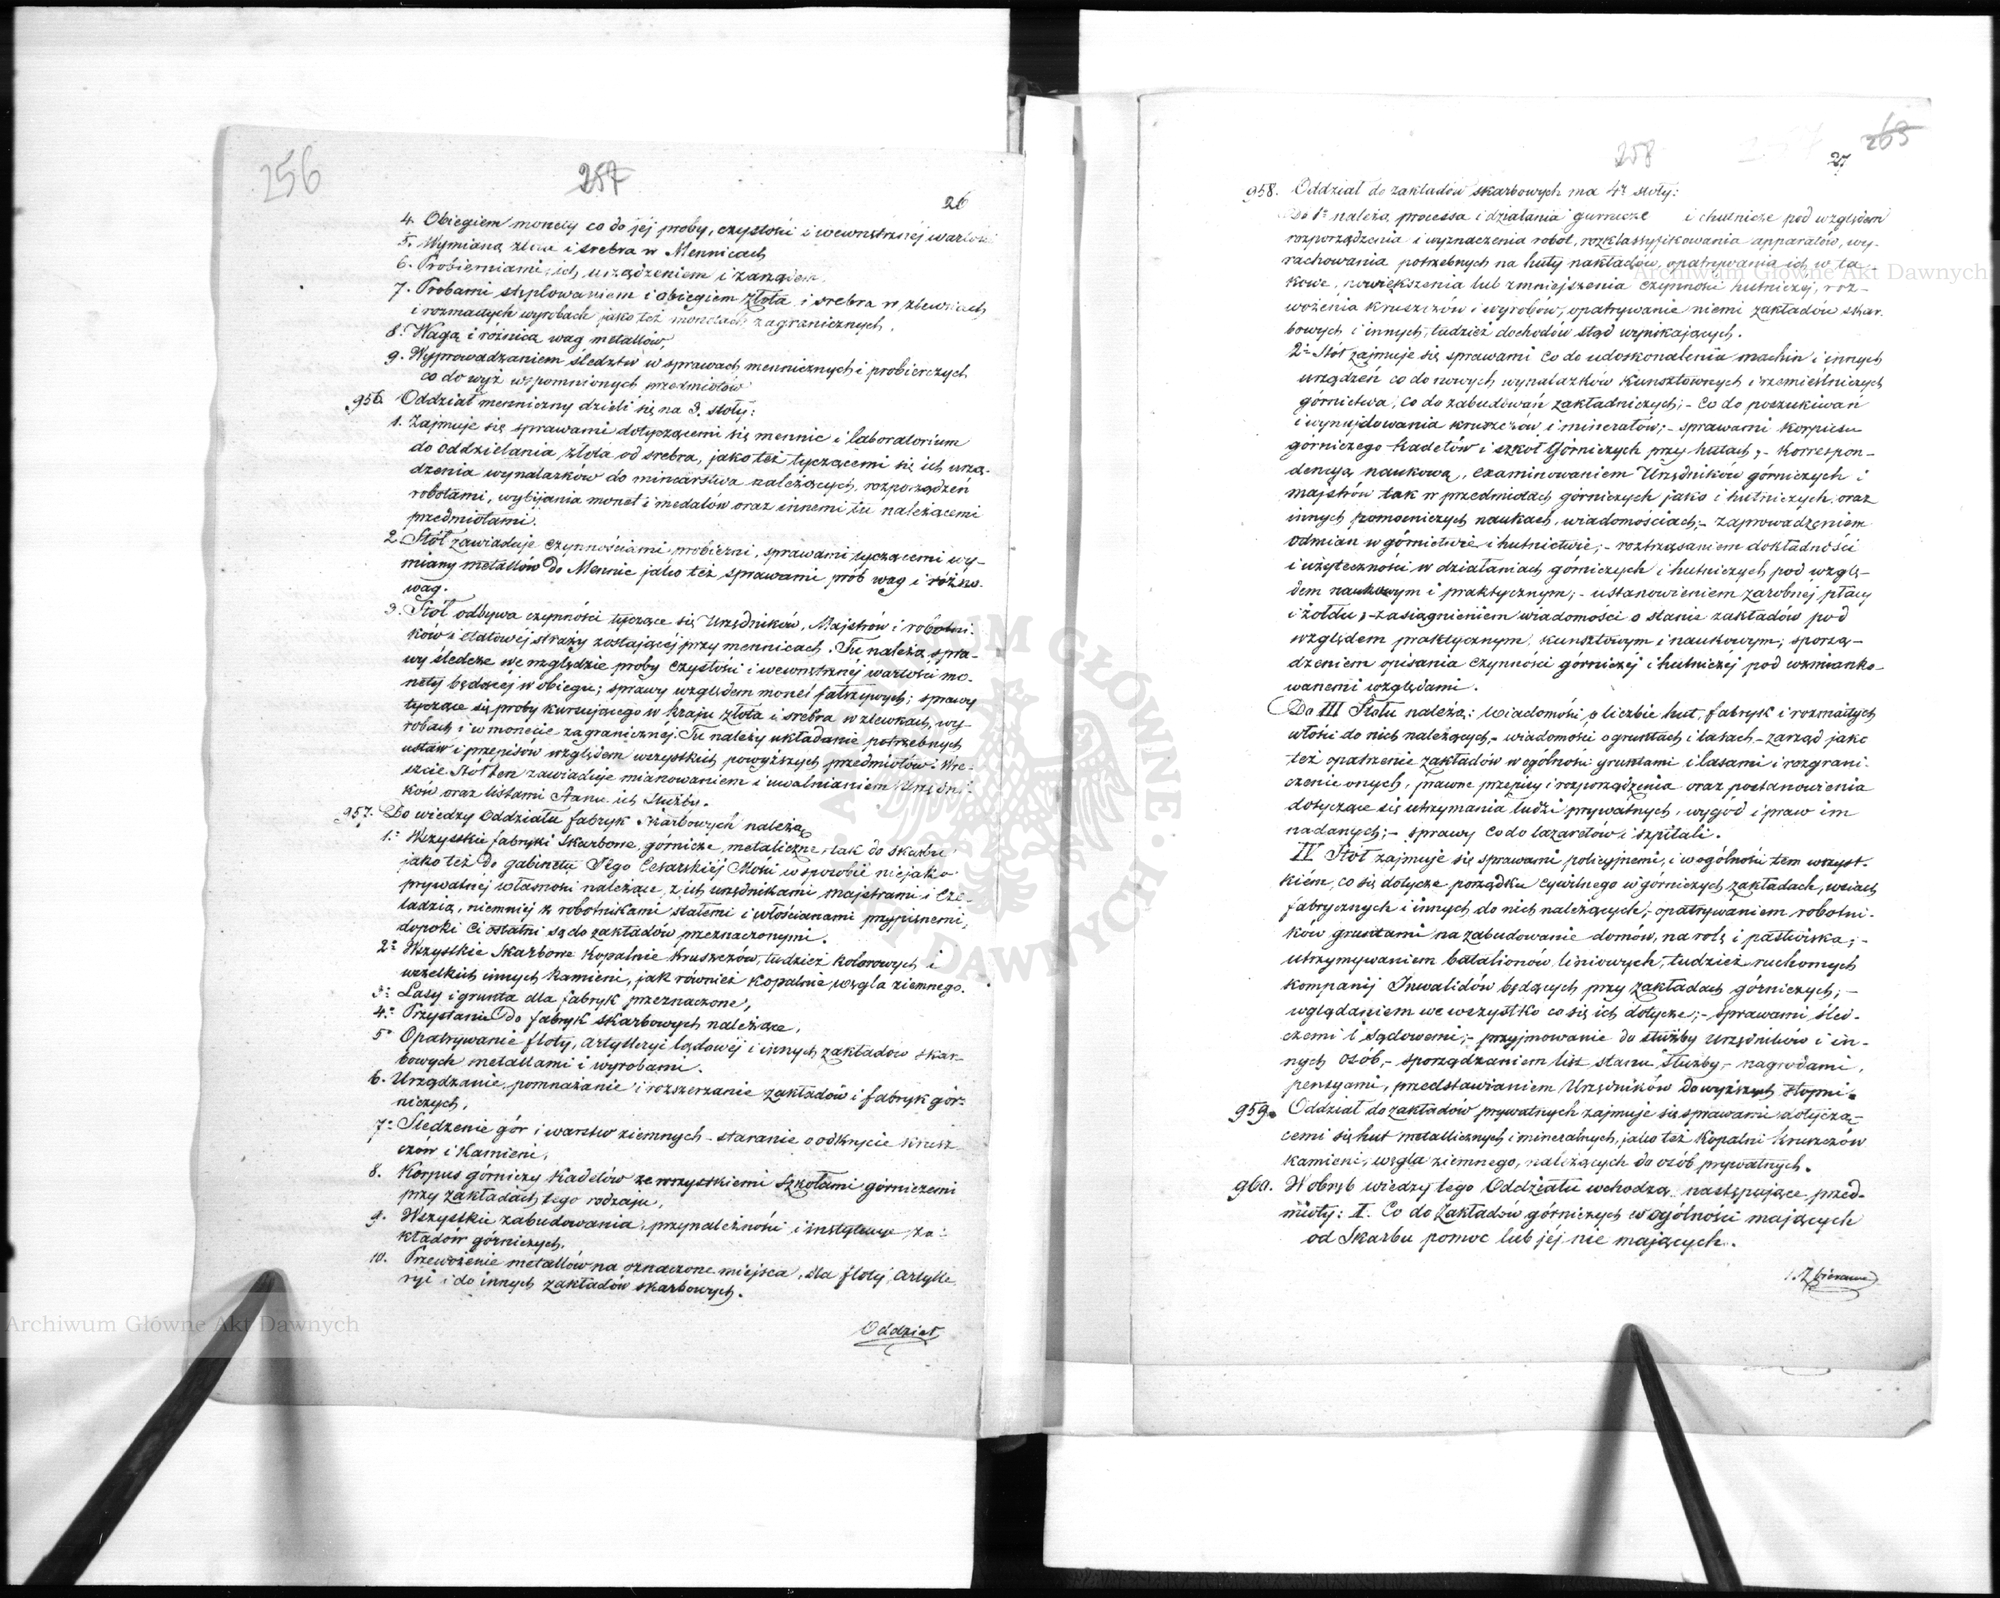 256
257
26
4. Obiegiem monety co do jéj proby, czystości i wewnętrznéj wartości
5. Wymianą złota i srebra w Mennicach
6. Probierniami, ich urządzeniem i zarządem,
7. Probami stęplowaniem i obiegiem złota i srebra w zlewkach
i rozmaitych wyrobach jako też monetach zagranicznych,
8. Wagą i różnicą wag metallów,
9. Wyprowadzaniem śledztw w sprawach mennicznych i probierczych
co do wyż wspomnionych przedmiotów
956. Oddział menniczny dzieli się na 3. stoły:
1. Zajmuje się sprawami dotyczącemi się mennic i laboratorium
do oddzielania złota od srebra, jako też tyczącemi się ich urzą-
dzenia wynalazków do mincarstwa należących, rozporządzeń
robotami, wybijania monet i medalów oraz innemi tu należącemi
przedmiotami.
2. Stół zawiaduje czynnościami probierni, sprawami tyczącemi wy-
miany metallów do Mennic jako też sprawami prób wag i różno-
wag.
3. Stół odbywa czynności tyczące się Urzędników, Majstrów i robotni-
ków i etatowéj straży zostającéj przy mennicach. Tu należą spra-
wy śledcze we względzie proby czystości i wewnętrznéj wartości mo-
nety będącéj w obiegu; sprawy względem monet fałszywych; sprawy
tyczące się proby kursującego w kraju złota i srebra w zlewkach, wy-
robach i w monecie zagranicznéj. Tu należy układanie potrzebnych
ustaw i przepisów względem wszystkich powyższych przedmiotów. Wre-
szcie Stół ten zawiaduje mianowaniem i uwalnianiem Urzędni-
ków oraz listami Stanu ich Służby.
957. Do wiedzy Oddziału fabryk Skarbowych należą
1. Wszystkie fabryki Skarbowe, górnicze, metaliczne, tak do skarbu
jako też do gabinetu Jego Cesarskiéj Mości w sposobie niejako
prywatnéj własności należące, z ich urzędnikami majstrami i cze-
ladzią, niemniéj z robotnikami stałemi i włościanami przypisnemi,
dopóki ci ostatni są do zakładów przeznaczonymi.
2. Wszystkie Skarbowe Kopalnie kruszczów, tudzież kolorowych i
wszelkich innych kamieni, jak również kopalnie węgla ziemnego.
3. Lasy i grunta dla fabryk przeznaczone,
4. Przystanie do fabryk skarbowych należące,
5. Opatrywanie floty, artylleryi lądowéj i innych zakładów skar-
bowych metallami i wyrobami.
6. Urządzanie, pomnażanie i rozszerzanie zakładów i fabryk gór-
niczych,
7. Śledzenie gór i warstw ziemnych – staranie o odkrycie krusz-
czów i Kamieni,
8. Korpus górniczy Kadetów ze wszystkiemi Szkołami górniczemi
przy zakładach tego rodzaju,
9. Wszystkie zabudowania, przynależności i instytucye za-
kładów górniczych,
10. Przewożenie metallów na oznaczone miejsca, dla floty, artylle
ryi i do innych zakładów skarbowych.
Oddział
258
257
263
27
958. Oddział do zakładów skarbowych ma 4ry stoły:
Do 1o należą processa i działania gurnicze i hutnicze pod względem
rozporządzenia i wyznaczenia robot, rozklassyfikowania apparatów, wy-
rachowania potrzebnych na huty nakładów, opatrywania ich w ta-
kowe, powiększenia lub zmniejszenia czynności hutniczéj, roz-
wożenia kruszczów i wyrobów, opatrywanie niemi zakładów skar-
bowych i innych, tudzież dochodów stąd wynikających.
2i Stół zajmuje się sprawami co do udoskonalenia machin i innych
urządzeń co do nowych wynalazków kunsztownych i rzemieślniczych
górnictwa, co do zabudowań zakładniczych; – co do poszukiwań
i wynajdowania kruszczów i minerałów; – sprawami korpusu
górniczego Kadetów i szkół Górniczych przy hutach; – Korrespon-
dencyą naukową, examinowaniem Urzędników górniczych i
majstrów tak w przedmiotach górniczych jako i hutniczych, oraz
innych pomocniczych naukach, wiadomościach, – zaprowadzeniem
odmian w górnictwie i hutnictwie; – roztrząsaniem dokładności
i użyteczności w działaniach górniczych i hutniczych pod wzglę-
dem naukowym i praktycznym; – ustanowieniem zarobnéj płacy
i żołdu; – zasiągnieniem wiadomości o stanie zakładów pod
względem praktycznym, kunsztowym i naukowym; sporzą-
dzeniem opisania czynności górniczéj i hutniczéj pod wzmianko-
wanemi względami.
Do III Stołu należą: wiadomości o liczbie hut, fabryk i rozmaitych
włości do nich należących, – wiadomości o gruntach i lasach, – zarząd jako
też opatrzenie zakładów w ogólności gruntami i lasami i rozgrani-
czenie onych, prawne przepisy i rozporządzenia oraz postanowienia
dotyczące się utrzymania ludzi prywatnych, wygód i praw im
nadanych; – sprawy co do lazaretów i szpitali.
IV Stół zajmuje się sprawami policyjnemi, i w ogólności tem wszyst-
kiém, co się dotycze porządku cywilnego w górniczych zakładach, wsiach
fabrycznych i innych do nich należących, – opatrywaniem robotni-
ków gruntami na zabudowanie domów, na rolę i pastwiska; –
utrzymywaniem batalionów liniowych, tudzież ruchomych
kompanij Inwalidów będących przy zakładach górniczych; –
wglądaniem we wszystko co się ich dotycze; – sprawami śled-
czemi i sądowemi; – przyjmowanie do służby urzędników i in-
nych osób, – sporządzaniem list stanu służby, – nagrodami,
pensyami, przedstawianiem Urzędników do wyższych stopni.
959. Oddział do zakładów prywatnych zajmuje się sprawami dotyczą-
cemi się hut metallicznych i mineralnych, jako też Kopalni kruszczów
kamieni, węgla ziemnego, należących do osób prywatnych.
960. W obręb wiedzy tego Oddziału wchodzą następujące przed-
mioty: I. Co do Zakładów górniczych w ogólności mających
od Skarbu pomoc lub jéj nie mających.
Archiwum Główne Akt Dawnych
Archiwum Główne Akt Dawnych
ARCHIWUM GŁÓWNE AKT DAWNYCH